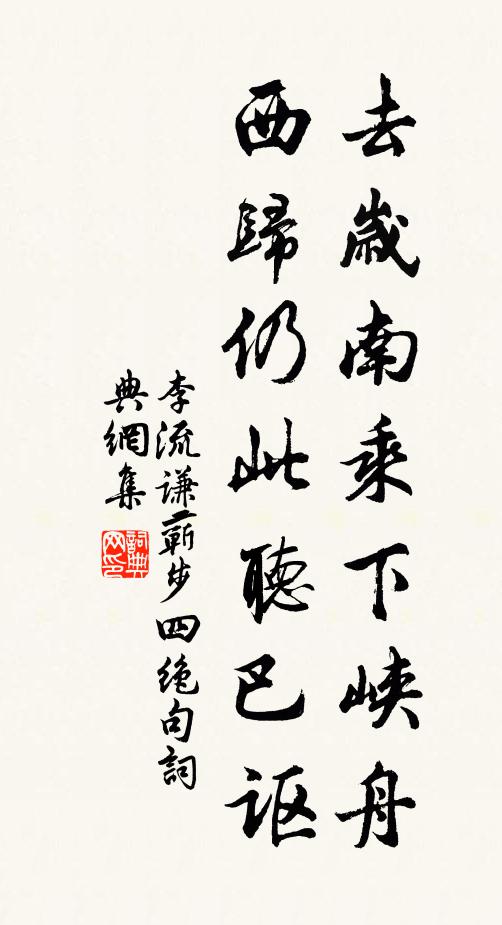 去歲南乘下峽舟
西歸仍此聽巴讴
李流谦蕲步四绝句詞
典網集
詞典网印